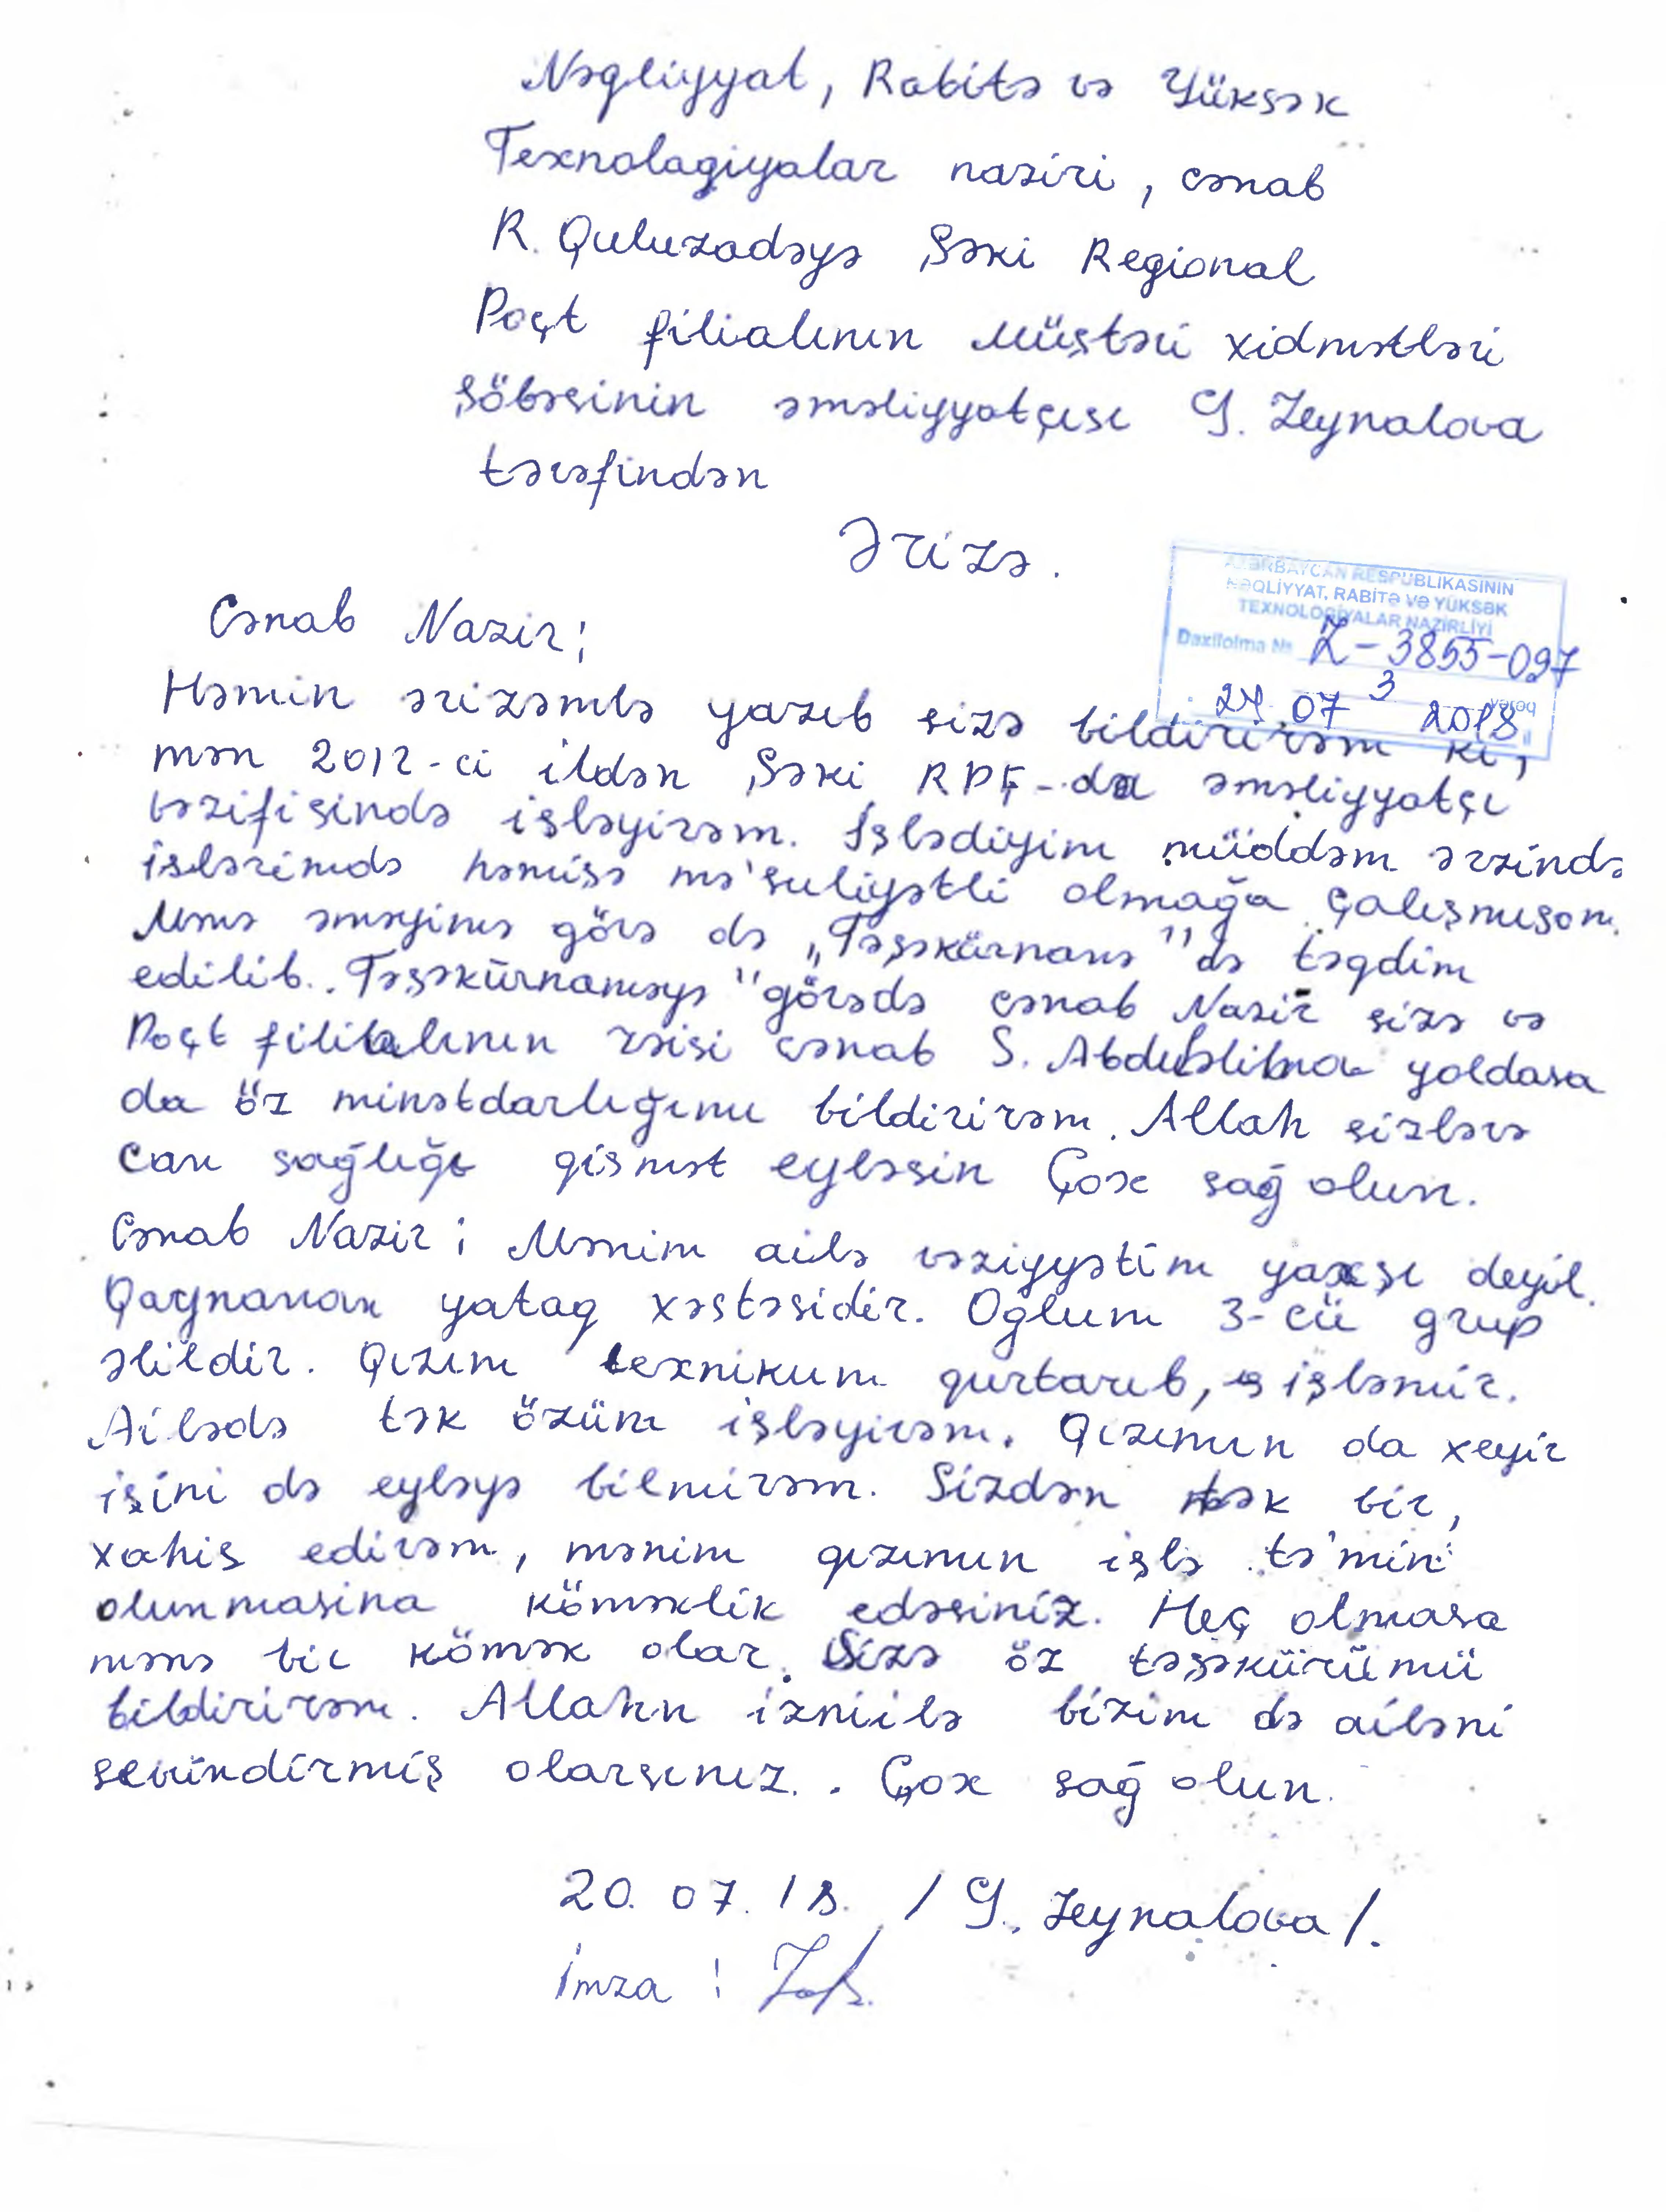 Nəqliyyat, Rabitə və Yüksək
Texnolagiyalar naziri, cənab
R. Quluzadəyə Şəki Regional
Poçt filialının Müştəri xidmətləri
şöbəsinin əməliyyatçısı G. Zeynalova
tərəfindən
Ərizə.
AZƏRBAYCAN RESPUBLİKASININ
NƏQLİYYAT, RABİTƏ VƏ YÜKSƏK
TEXNOLOGİYALAR NAZİRLİYİ
Daxilolma № Z-3855-097
3 vərəq
24 07 2018 il
Cənab Nazir;
Həmin ərizəmlə yazıb sizə bildirirəm ki,
mən 2012-ci ildən Şəki RPF-da əməliyyatçı
vəzifisində işləyirəm. İşlədiyim müddəm ərzində
islərimdə həmişə mə'suliyətli olmağa çalışmışam.
Mənə əməyimə görə də „Təşəkürnamə" də təqdim
edilib. Təşəkürnaməyə" görədə cənab Nazir sizə və
Poçt filialının rəisi cənab S. yoldaşa
da öz minətdarlığımı bildirirəm. Allah sizlərə
can sağlığı qismət eyləsin Çox sağ olun.
Cənab Nazir; Mənim ailə vəziyyətim yaxşı deyil.
Qaynanam yataq xəstəsidir. Oğlum 3-cü grup
əlildir. Qızım texnikum qurtarıb, işləmir.
Ailədə tək özüm işləyirəm. Qızımın da xeyir
işini də eyləyə bilmirəm. Sizdən tək bir,
xahis edirəm, mənim qızımın işlə tə'min
olunmasina köməklik edəsiniz. Heç olmasa
mənə bir kömək olar. Sizə öz təşəkürümü
bildirirəm. Allahın izniilə bizim də ailəni
sevindirmiş olarsınız. Çox sağ olun.
20.07.18. / G. Zeynalova/.
İmza: